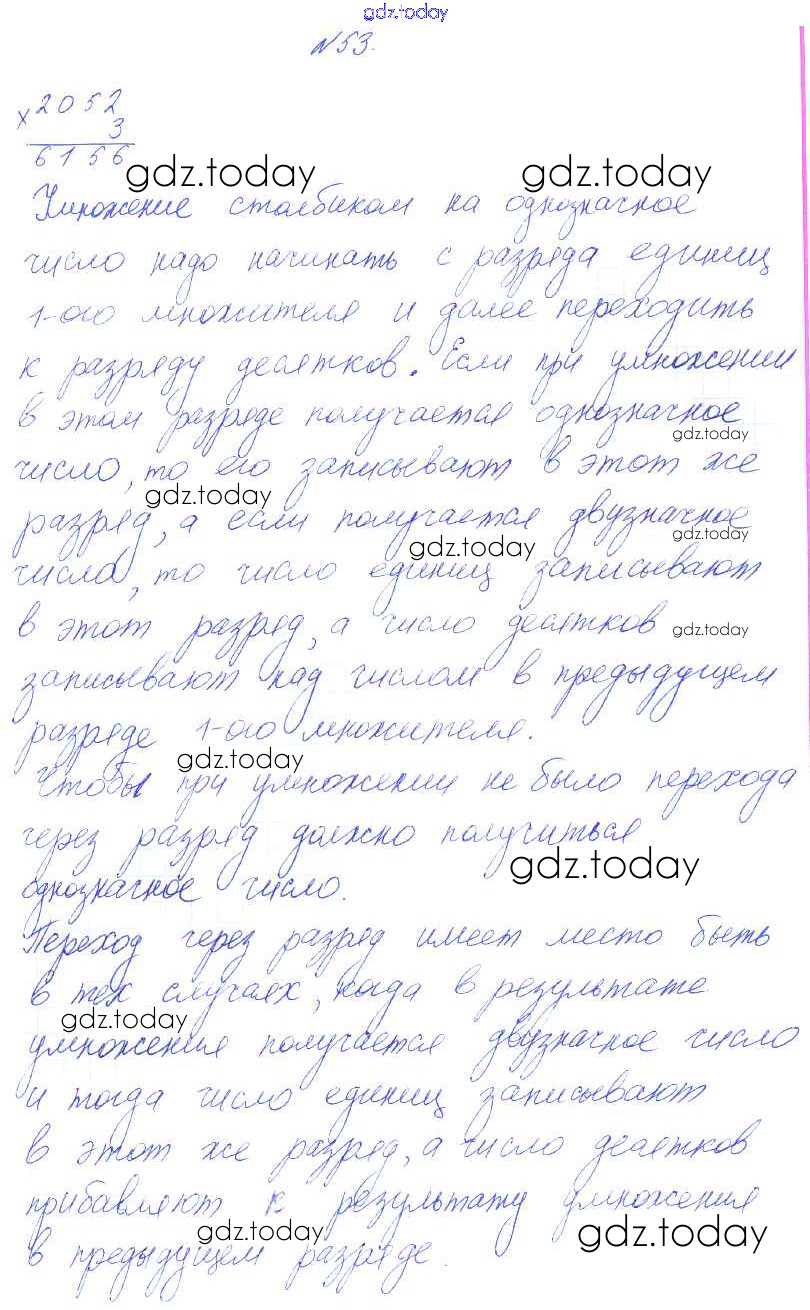 gdz.today
№53.
× 2052
3
6156
gdz.today gdz.today
Умножение столбиком на однозначное
число надо начинать с разряда единиц
1-ого множителя и далее переходить
к разряду десятков. Если при умножении
в этом разряде получается однозначное
gdz.today
число, то его записывают в этот же
gdz.today
разряд, а если получается двузначное
gdz.today
gdz.today
числа, то число единиц записывают
в этот разряд, а число десятков
gdz.today
записывают над числом в предыдущем
разряде 1-ого множителя.
gdz.today
Чтобы при умножении не было перехода
через разряд должно получиться
gdz.today
однозначное число.
Переход через разряд имеет место быть
в тех случаях, когда в результате
gdz.today
умножения получается двузначное число
и тогда число единиц записывают
в этот же разряд, а число десятков
прибавляют к результату умножения
gdz.today gdz.today
в предыдущем разряде.